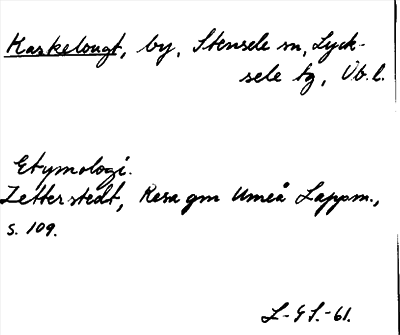 Maskelougt, by, Stensele sn, Lyck-
sele tg, Vb. l.
Etymologi.
Zetterstedt, Resa gm Umeå Lappm.,
s. 109.
L-GS.-61.